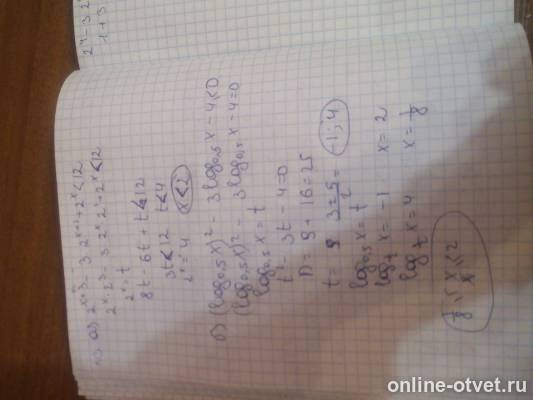 а) 2^(x+3) - 3·2^(x+1) + 2^x < 12
2^x·2^3 - 3·2^x·2 + 2^x < 12
2^x = t
8t - 6t + t < 12
3t < 12 t < 4
2^x = 4 x < 2
б) (log₀,₅x)² - 3log₀,₅x - 4 ≤ 0
(log₀,₅x)² - 3log₀,₅x - 4 = 0
log₀,₅x = t
t² - 3t - 4 = 0
D = 9 + 16 = 25
= -1; 4
log₀,₅x = t
x = -1 x = 2
x = 4
2^x - 3·2
1 + 3
online-otvet.ru